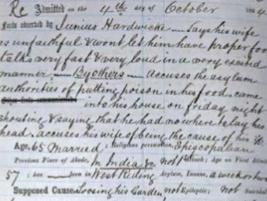 Re Admitted on the 4th day October
Facts observed by Junius Hardwicke - Says his wife
is unfaithful & wont let him have proper foo
talks very fast & very loud in a very excited
manner. - By others - accuses the asylum
authorities of putting poison in his food, came
into his house on friday night
shouting & saying that he had no where to lay his
head. accuses his wife of being the cause of
Age. 65 Married, Episcopalian
Previous Place of Abode, In India not
57 in West Riding Asylum, a week or
Supposed Cause Loosing his Garden, not Epileptic; not